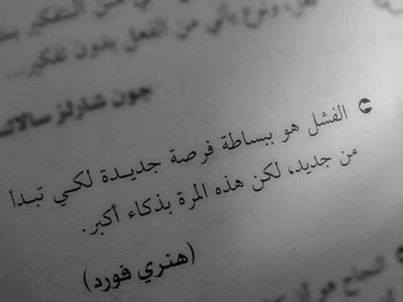 ونوع يأتي من الفعل بدون تفكير...
جون تشارلز سالاك
الفشل هو ببساطة فرصة جديدة لكي تبدأ
من جديد، لكن هذه المرة بذكاء أكبر.
(هنري فورد)
النجاح هو أن